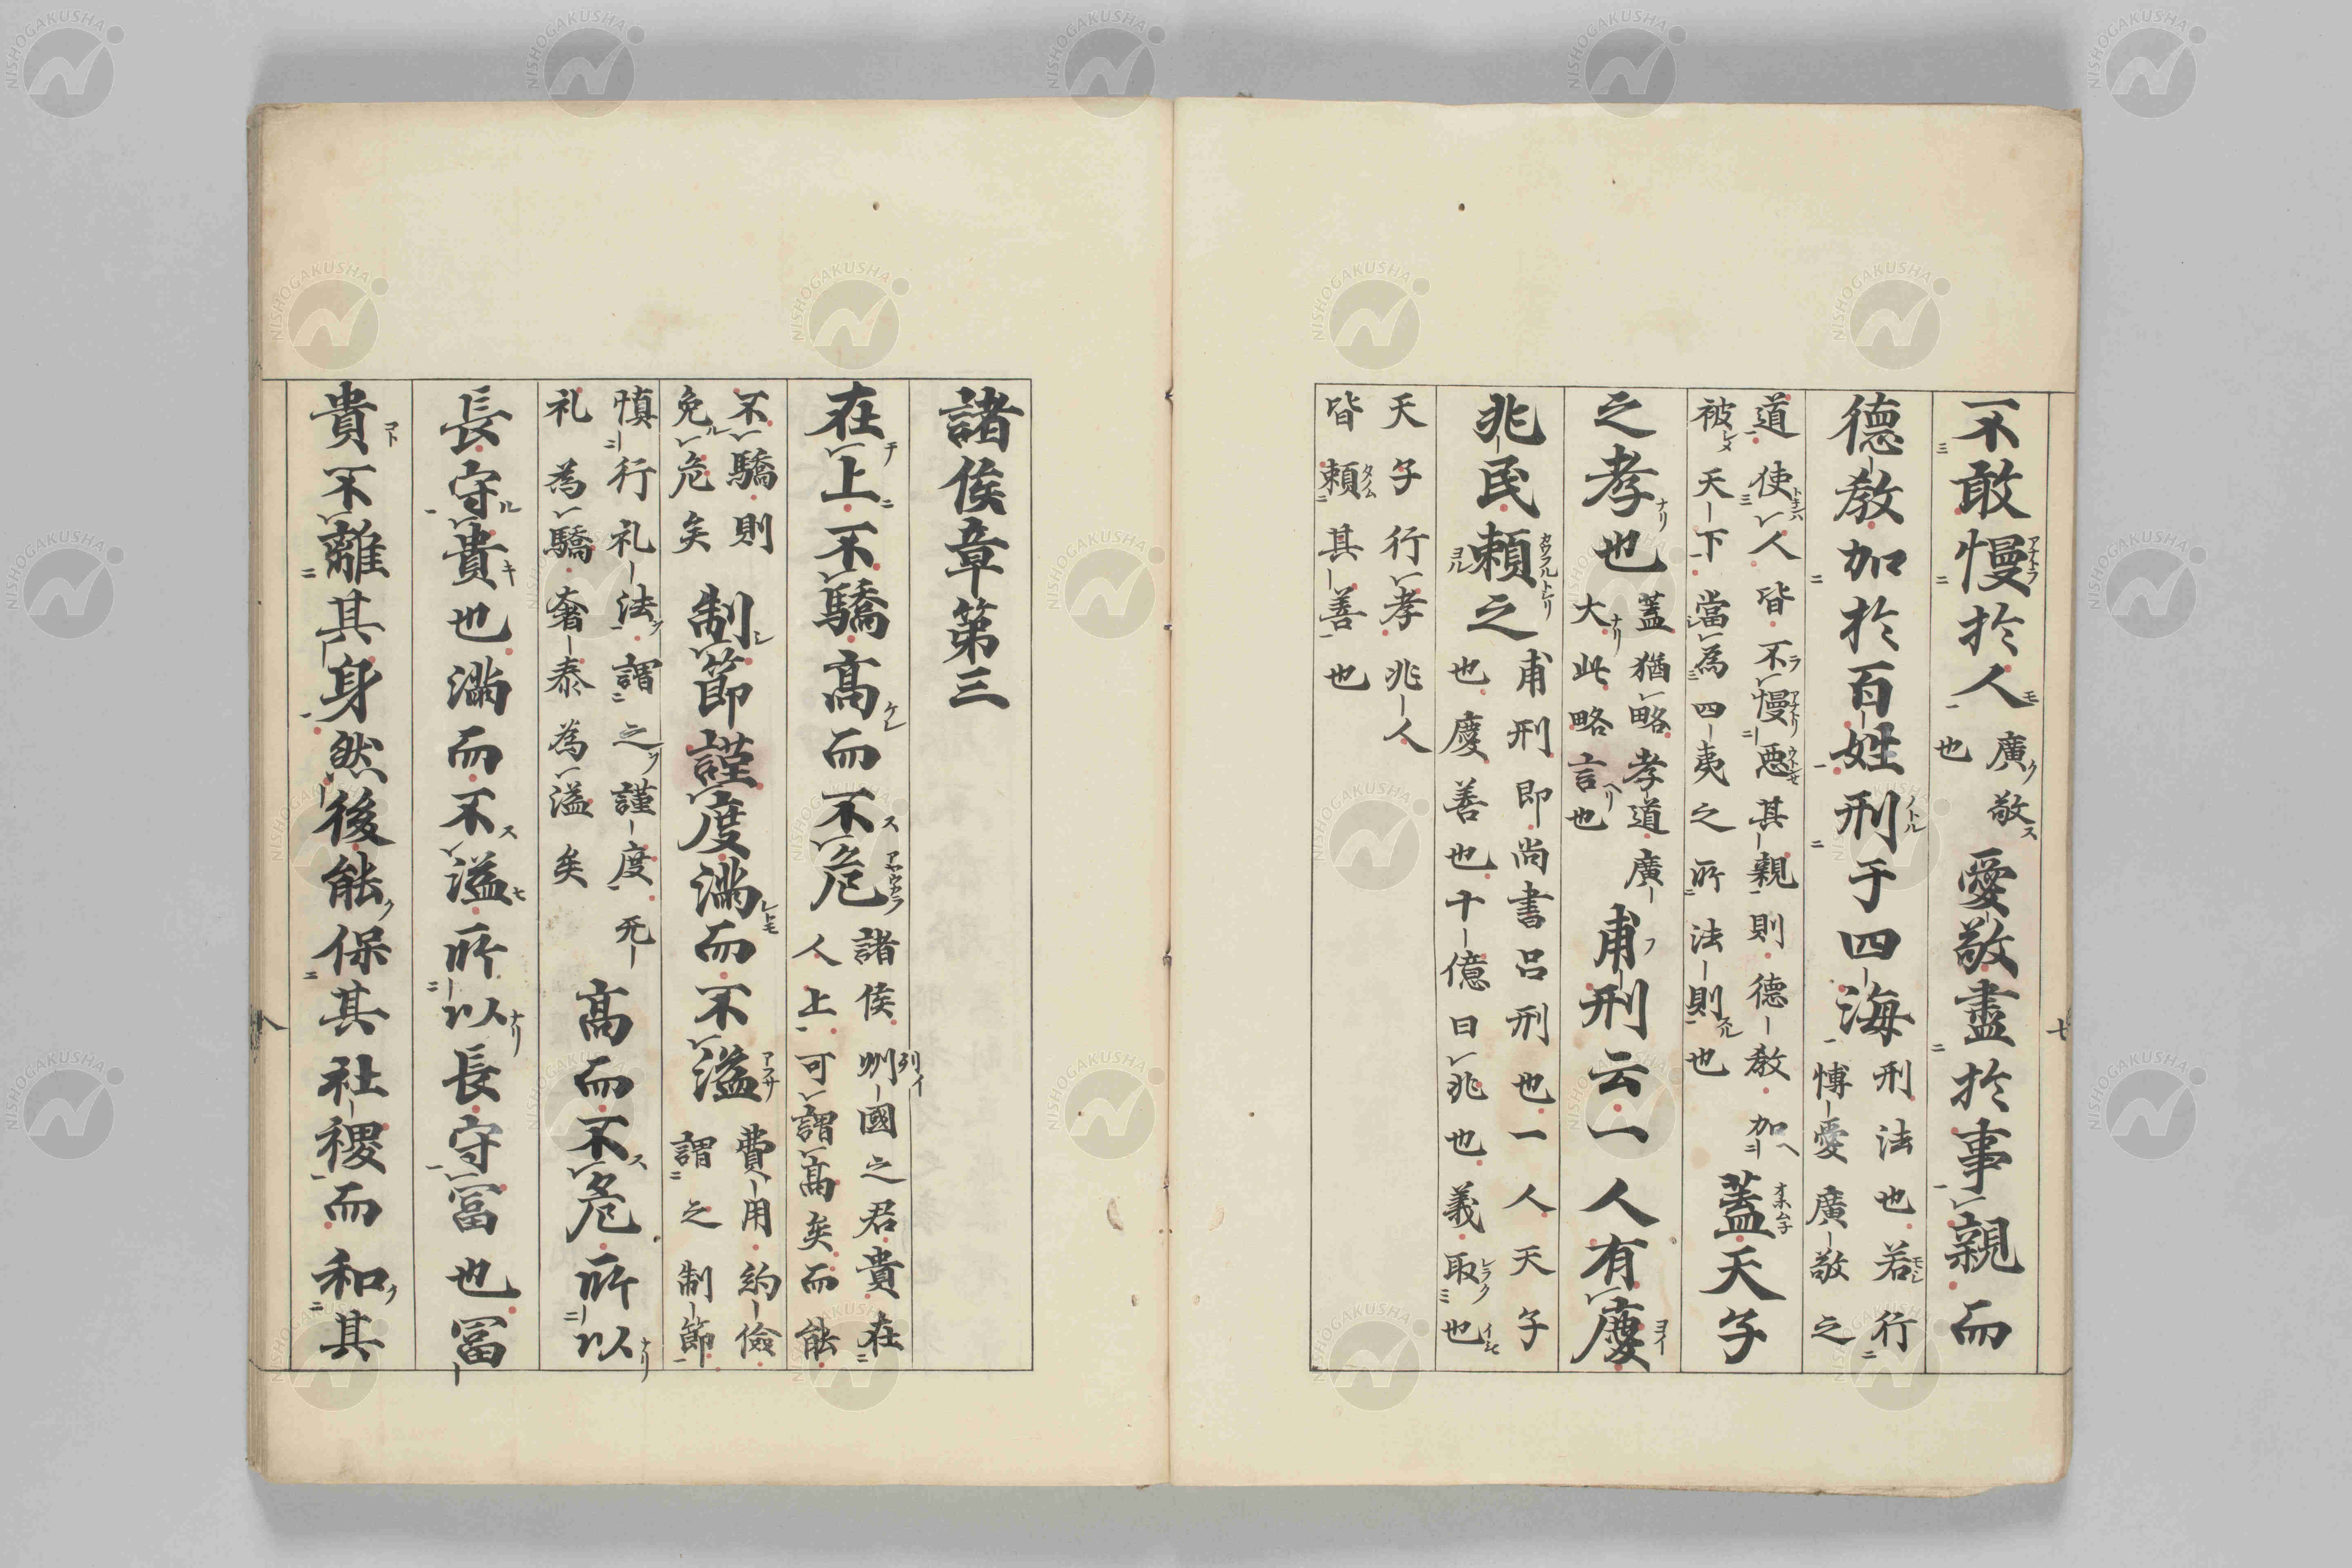 不敢慢於人廣敬也愛敬盡於事親而
德教加於百姓刑于四海刑法也若行博愛廣敬之
道使人皆不慢惡其親則德教加被天下當為四夷之所法則也蓋天子
之孝也蓋猶略孝道廣大此略言也甫刑云一人有慶
兆民頼之甫刑即尚書呂刑也一人天子也慶善也十億曰兆也義取也
天子行孝兆人皆頼其善也
七
諸侯章第三
在上不驕高而不危諸侯列國之君貴在人上可謂高矣而能
不驕則免危矣制節謹度滿而不溢費用約儉謂之制節
慎行礼法謂之謹度无礼為驕奢泰為溢矣高而不危所以
長守貴也滿而不溢所以長守冨也冨
貴不離其身然後能保其社稷而和其
八
NISHOGAKUSHA